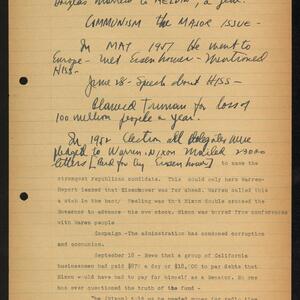 married to MELVIN, a year.
COMMUNISM the MAJOR ISSUE -
In MAY 1951 He went to
Europe - met Eisenhower - Mentioned
HISS -
June 28 - Speech about HISS -
Blamed Truman for loss of
100 million people a year.
In 1952 Election all Delegates were
pledged to Warren. Nixon Mailed 23000
letters to name the
strongest republican candidate. This could only hero Warren-
Report leaked that Eisenhower was far ahead. Warren called this
a stab in the back; Feeling was that Nixon double crossed the
Governor to advance his own stock. Nixon was barred from conferences
with Waren people
Campaign -The administration has condoned corruption
and communism.
September 18 - News that a group of California
businessmen had paid $875 a day or $18,000 to pay debts that
Nixon would have had to pay for himself as a Senator. No one
has ever questioned the truth of the fund -